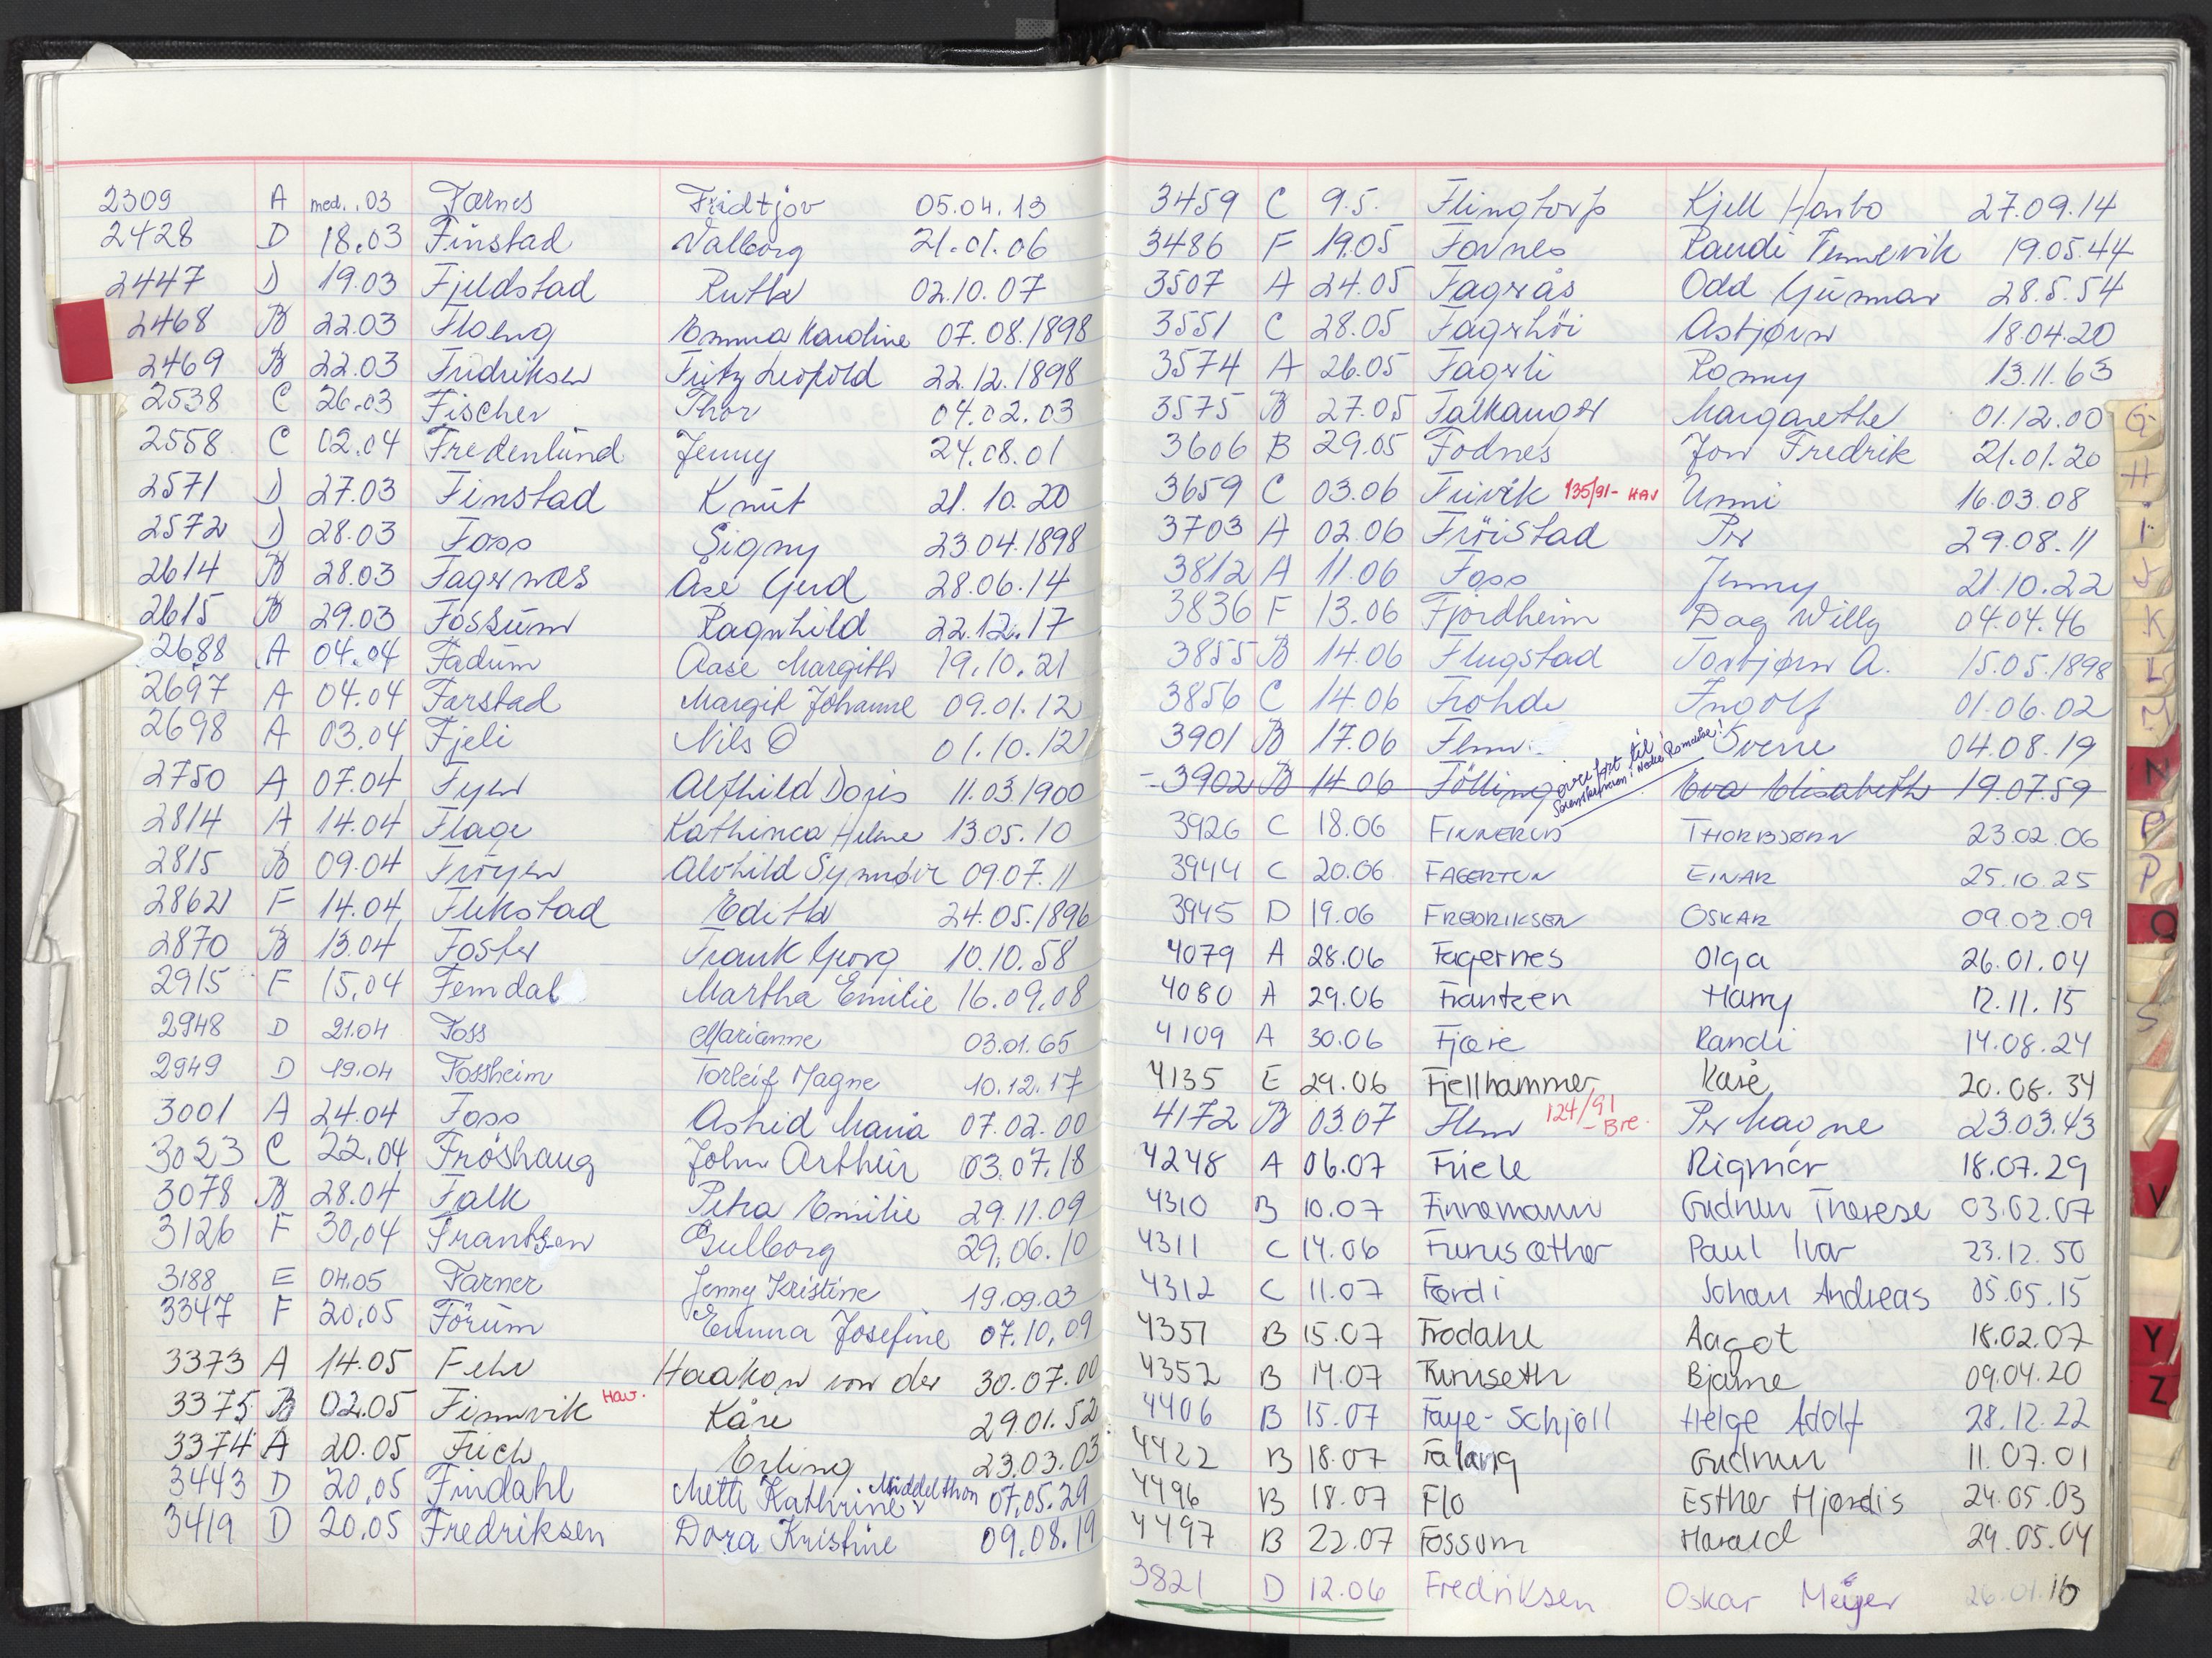 2309 A med. 03 Farnes Fridtjov 05.04.13
2428 D 18.03 Finstad Valborg 21.01.06
2447 D 19.03 Fjeldstad Ruth 02.10.07
2468 B 22.03 Floeng Emma Karoline 07.08.1898
2469 B 22.03 Fredriksen Fritz Leopold 22.12.1898
2538 C 26.03 Fischer Thor 04.02.03
2558 C 02.04 Fredenlund Jenny 24.08.01
2571 D 27.03 Finstad Knut 21.10.20
2572 D 28.03 Foss Signy 23.04.1898
2614 B 28.03 Fagernæs Åse Gerd 28.06.14
2615 B 29.03 Fossum Ragnhild 22.12.17
2688 A 04.04 Fadum Aase Margith 19.10.21
2697 A 04.04 Farstad Margit Johanne 09.01.12
2698 A 03.04 Fjeli Nils O 01.10.12
2750 A 07.04 Fyen Alfhild Doris 11.03.1900
2814 A 14.04 Flage Kathinca Helene 13.05.10
2815 B 09.04 Frøyen Alvhild Synnøve 09.07.11
2862 F 14.04 Flekstad Edith 24.05.1896
2870 B 13.04 Foster Frank Georg 10.10.58
2915 F 15.04 Femdal Martha Emilie 16.09.08
2948 D 21.04 Foss Marianne 03.01.65
2949 D 19.04 Fossheim Torleif Magne 10.12.17
3001 A 24.04 Foss Astrid Maria 07.02.00
3023 C 22.04 Frøshaug John Arthur 03.07.18
3078 B 28.04 Falk Petra Emilie 29.11.09
3126 F 30.04 Frantsen Gulborg 29.06.10
3188 E 04.05 Farner Jenny Kristine 19.09.03
3347 F 20.05 Førum Emma Josefine 07.10.09
3373 A 14.05 Fehr Haakon von der 30.07.00
3375 B 02.05 Finnvik Hav. Kåre 29.01.52
3374 A 20.05 Frich Erling 23.03.03
3443 D 20.05 Findahl Mette Kathrine Middelthon 07.05.29
3419 D 20.05 Fredriksen Dora Kristine 09.08.19
3459 C 9.5. Flingtorp Kjell Harbo 27.09.14
3486 F 19.05 Fornes Randi 19.05.44
3507 A 24.05 Fagerås Odd Gunnar 28.5.54
3551 C 28.05 Fagerhøi Asbjørn 18.04.20
3574 A 26.05 Fagerli Ronny 13.11.63
3575 B 27.05 Falkanger Margarethe 01.12.00
3606 B 29.05 Fodnes Jon Fredrik 21.01.20
3659 C 03.06 Frivik 135/91- HAV Unni 16.03.08
3703 A 02.06 Frøistad Per 29.08.11
3812 A 11.06 Foss Jenny 21.10.22
3836 F 13.06 Fjordheim Dag Willy 04.04.46
3855 B 14.06 Flugstad Torbjørn A. 15.05.1898
3856 C 14.06 Frohde Ingolf 01.06.02
3901 B 17.06 Flem Sverre 04.08.19
3902 B 14.06 Følling overført til Sorenskriveren i Nedre Romerike! Eva Elisabeth 19.07.59
3926 C 18.06 FINNERUD THORBJØRN 23.02.06
3944 C 20.06 FAGERTUN EINAR 25.10.25
3945 D 19.06 FREDRIKSEN OSKAR 09.02.09
4079 A 28.06 Fagernes Olga 26.01.04
4080 A 29.06 Frantzen Harry 12.11.15
4109 A 30.06 Fjære Randi 14.08.24
4135 E 29.06 Fjellhammer Kåre 20.08.34
4172 B 03.07 Flem 124/91 - Bre. Per Magne 23.03.43
4248 A 06.07 Friele Rigmor 18.07.29
4310 B 10.07 Finnemann Gudrun Therese 03.02.07
4311 C 14.06 Furusæther Paul Ivar 23.12.50
4312 C 11.07 Førdi Johan Andreas 05.05.15
4351 B 15.07 Frodahl Aagot 18.02.07
4352 B 14.07 Furuseth Bjarne 09.04.20
4406 B 15.07 Faye-Schjøll Helge Adolf 28.12.22
4422 B 18.07 Falang Gudrun 11.07.01
4496 B 18.07 Flo Esther Hjørdis 24.05.03
4497 B 22.07 Fossum Harald 29.05.04
3821 D 12.06 Fredriksen Oskar Meyer 26.01.10
G
H
I
J
K
L
M
N
P
P
Q
S
V
Y
Z